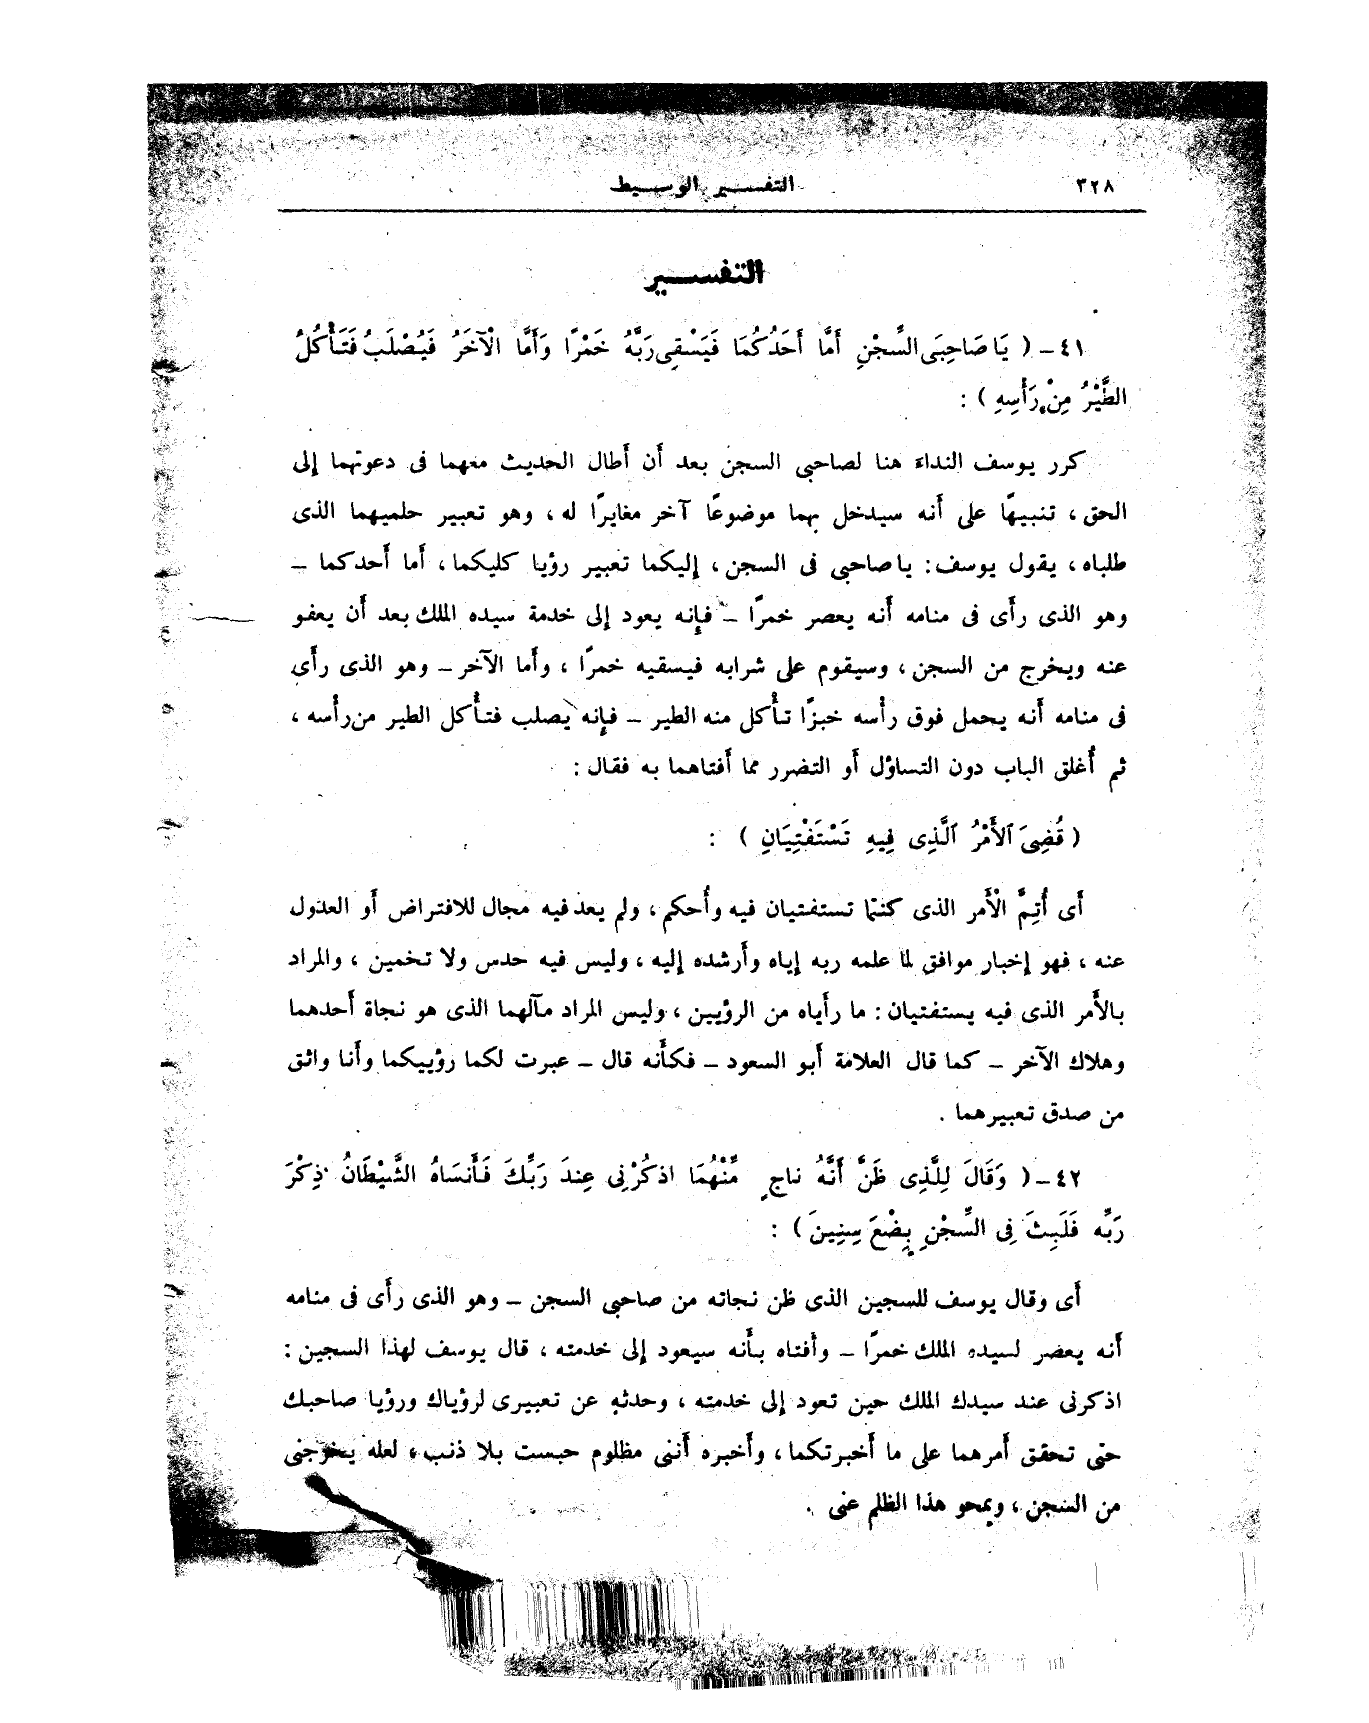 ٣٢٨
التفسير الوسيط
التفسير
٤١ – ( يَا صَاحِبَىِ السِّجْنِ أَمَّا أَحَدُكُمَا فَيَسْقِى رَبَّهُ خَمْرًا وَأَمَّا الْآخَرُ فَيُصْلَبُ فَتَأْكُلُ
الطَّيْرُ مِنْ رَأْسِهِ ) :
كرر يوسف النداء هنا لصاحبى السجن بعد أن أطال الحديث معهما فى دعوتهما إلى
الحق ، تنبيهًا على أنه سيدخل بهما موضوعًا آخر مغايرًا له ، وهو تعبير حلميهما الذى
طلباه ، يقول يوسف : يا صاحبى فى السجن ، إليكما تعبير رؤيا كليكما ، أما أحدكما –
وهو الذى رأى فى منامه أنه يعصر خمرًا – فإنه يعود إلى خدمة سيده الملك بعد أن يعفو
عنه ويخرج من السجن ، وسيقوم على شرابه فيسقيه خمرًا ، وأما الآخر – وهو الذى رأى
فى منامه أنه يحمل فوق رأسه خبزًا تأكل منه الطير – فإنه يصلب فتأكل الطير من رأسه ،
ثم أُغلق الباب دون التساؤل أو التضرر مما أفتاهما به فقال :
( قُضِىَ ٱلأَمْرُ ٱلَّذِى فِيهِ تَسْتَفْتِيَانِ ) :
أى أُتِمَّ الْأَمر الذى كنتما تستفتيان فيه وأُحكم ، ولم يعد فيه مجال للافتراض أو العدول
عنه ، فهو إخبار موافق لما علمه ربه إياه وأرشده إليه ، وليس فيه حدس ولا تخمين ، والمراد
بالأمر الذى فيه يستفتيان : ما رأياه من الرؤيين ، وليس المراد مآلهما الذى هو نجاة أحدهما
وهلاك الآخر – كما قال العلامة أبو السعود – فكأنه قال – عبرت لكما رؤييكما وأنا واثق
من صدق تعبيرهما .
٤٢ – ( وَقَالَ لِلَّذِى ظَنَّ أَنَّهُ ناجٍ مِّنْهُمَا اذكُرْنِى عِندَ رَبِّكَ فَأَنسَاهُ الشَّيْطَانُ ذِكْرَ
رَبِّه فَلَبِثَ فِى السِّجْنِ بِضْعَ سِنِينَ ) :
أى وقال يوسف للسجين الذى ظن نجاته من صاحبى السجن – وهو الذى رأى فى منامه
أنه يعصر لسيده الملك خمرًا – وأفتاه بأنه سيعود إلى خدمته ، قال يوسف لهذا السجين :
اذكرنى عند سيدك الملك حين تعود إلى خدمته ، وحدثه عن تعبيرى لرؤياك ورؤيا صاحبك
حتى تحقق أمرهما على ما أخبرتكما ، وأخبره أننى مظلوم حبست بلا ذنب ، لعله يخرجنى
من السجن ، ويمحو هذا الظلم عنى .